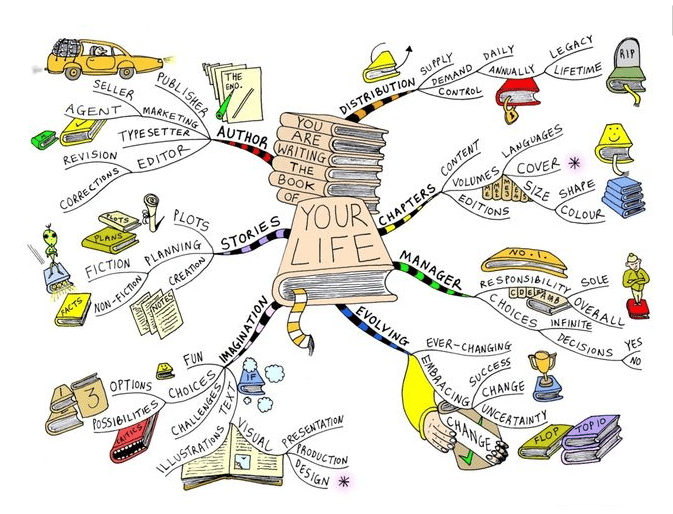 YOU
ARE
WRITING
THE
BOOK
OF
YOUR
LIFE
DISTRIBUTION
SUPPLY
DEMAND
CONTROL
DAILY
ANNUALLY
LEGACY
LIFETIME
RIP
CHAPTERS
CONTENT
VOLUMES
EDITIONS
LANGUAGES
COVER
SIZE
SHAPE
COLOUR
MANAGER
NO. 1.
RESPONSIBILITY
SOLE
OVERALL
CHOICES
INFINITE
DECISIONS
YES
NO
EVOLVING
EVER-CHANGING
EMBRACING
SUCCESS
CHANGE
UNCERTAINTY
CHANGE
FLOP
TOP 10
IMAGINATION
FUN
CHOICES
OPTIONS
POSSIBILITIES
1
3
CRITICS
CHALLENGES
TEXT
IF
ILLUSTRATIONS
VISUAL
PRESENTATION
PRODUCTION
DESIGN
STORIES
PLOTS
PLANNING
FICTION
NON-FICTION
CREATION
PLOTS
PLANS
FACTS
NOTES
AUTHOR
PUBLISHER
SELLER
MARKETING
AGENT
TYPESETTER
EDITOR
REVISION
CORRECTIONS
THE
END.